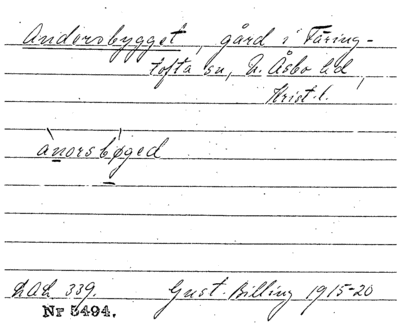 Andersbygget, gård i Färing-
tofta sn, N. Åsbo hd,
Krist. l.
ànorsbǿged
LAL 339. Gust. Billing 1915-20
Nr 5494.